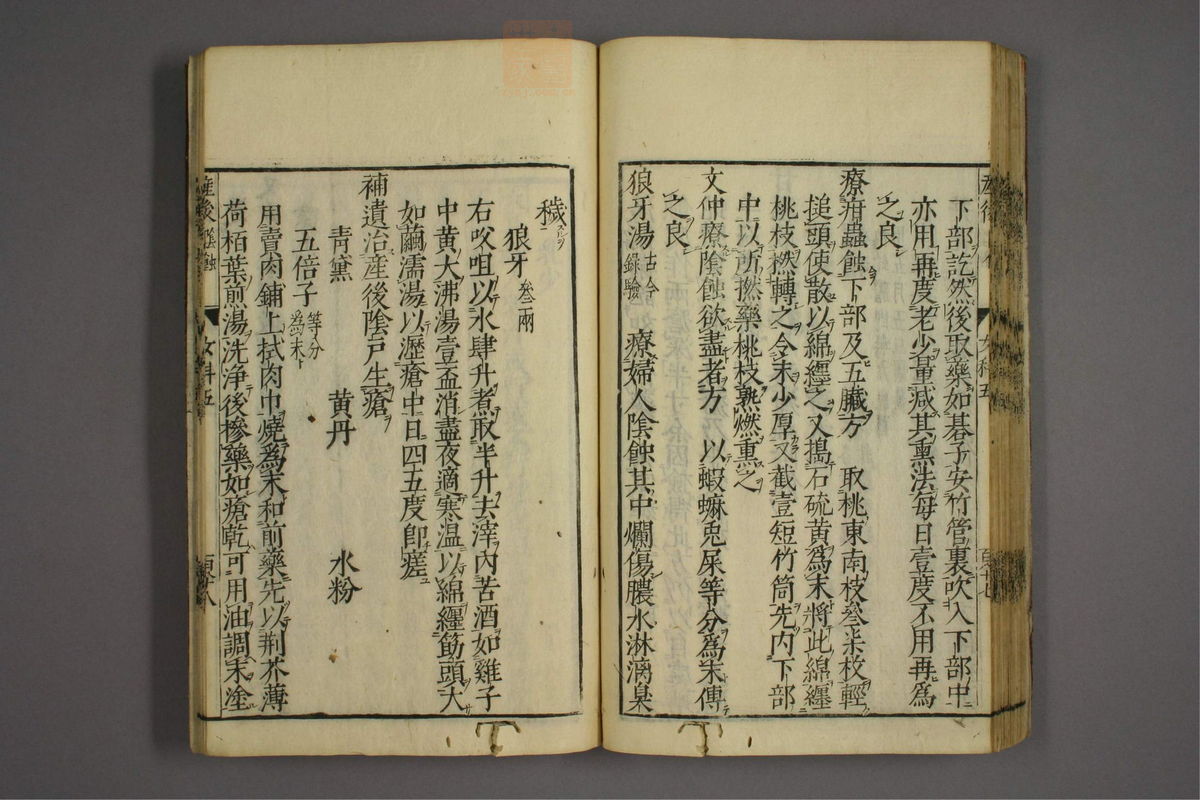 下部訖然後取藥如碁子安竹管裏吹入下部中
亦用再度老少量減其熏法每日壹度不用再爲
之良
療疳蟲蝕下部及五臟方　取桃東南枝叄柒枚輕
搥頭使散以綿纏之又搗石硫黄爲末將此綿纏
桃枝撚轉之令末少厚又截壹短竹筒先内下部
中以所撚藥桃枝熟燃熏之
文仲療陰蝕欲盡者方　以蝦蟆兎屎等分爲末傅
之良
狼牙湯 古今録驗 療婦人陰蝕其中爛傷膿水淋漓臭
穢
狼牙 叄兩
右㕮咀以水肆升煮取半升去滓内苦酒如雞子
中黄大沸湯壹盃消盡夜適寒温以綿纏筯頭大
如繭濡湯以瀝瘡中日四五度卽瘥
補遺治產後陰戸生瘡
靑黛　黄丹　水粉
五倍子 等分爲末
用賣肉鋪上拭肉巾燒爲末和前藥先以荆芥薄
荷栢葉煎湯洗浄後摻藥如瘡乾可用油調末塗
產後陰蝕　女科五　百十八